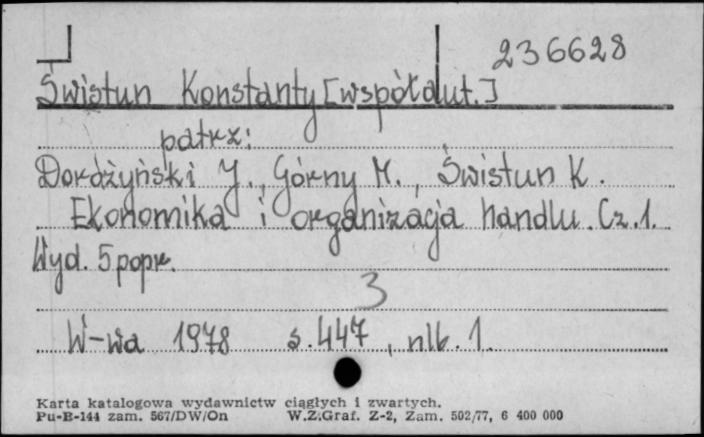 236628
Świstun Konstanty [współaut.]
patrz:
Dordżyński J., Górny M., Świstun K.
Ekonomika i organizacja handlu. Cz. 1.
Wyd. 5 popr.
3
W-wa 1978 s. 447, nlb. 1.
Karta katalogowa wydawnictw ciągłych i zwartych.
Pu-B-144 zam. 567/DW/On W.Z.Graf. Z-2, Zam. 502/77, 6 400 000